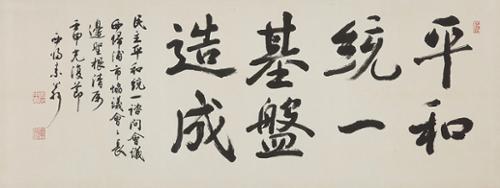 平和
統一
基盤
造成
民主平和統一諮問會議
西歸浦市協議會々長
邊聖根清属
壬申光復節
素翁